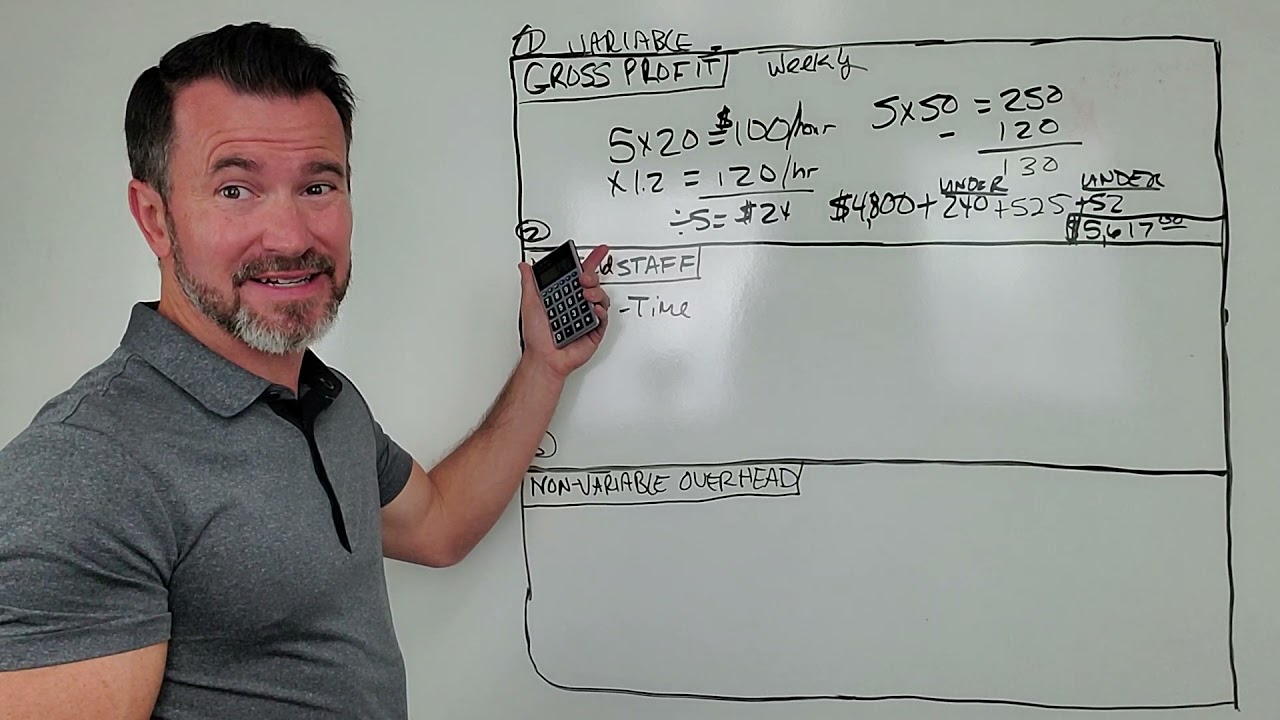 ① VARIABLE
GROSS PROFIT weekly
5x20 = $100/hour
x1.2 = 120/hr
÷5 = $24
5x50 = 250
- 120
130
UNDER UNDER
$4,800 + 240 + 525 + 52
$5,617.00
②
STAFF
-Time
NON-VARIABLE OVERHEAD